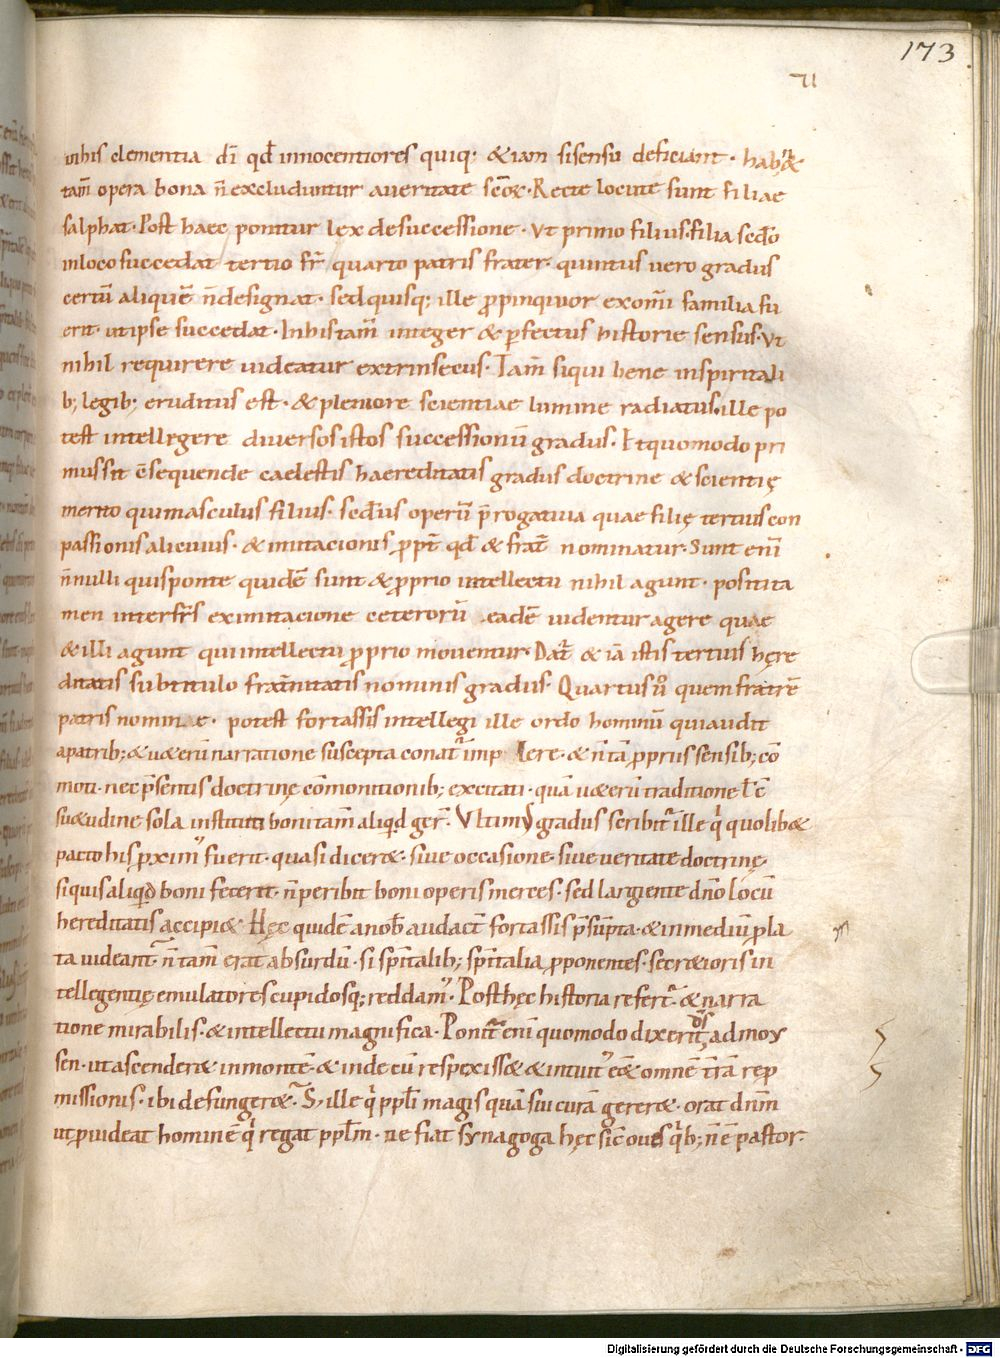 173
VI
inhis clementia dī qđ innocentiores quiq; &iam sisensu deficiant · habe&
tam̄ opera bona n̄ excluduntur aueritate sc̄ox · Recte locute sunt filiae
salphat · Post haec ponitur lex desuccessione · Ut primo filius · filia secđo
inloco succedat tertio fr̄ quarto patris frater · quintus uero gradus
certū aliquē n̄designat · sedquisq; ille ꝓpinquior exom̄i familia fu
erit · utipse succedat · Inhistam̄ integer & ꝑfectus historie sensus · Ut
nihil requirere uideatur extrinsecus · Tam̄ siqui bene inspiritali
b; legib; eruditus est · & pleniore scientiae lumine radiatus · ille po
test intellegere diuersos istos successionū gradus · Etquomodo pri
mussit c̄sequende caelestis haereditatis gradus doctrine & scientię
merito quimasculus filius · secđus operū p̄rogatiua quae filię tertius con
passionis alicuius · & imitacionis ꝓpt̄ qđ & frat̄ nominatur · Sunt enī
n̄nulli quisponte quidē sunt & ꝓprio intellectu nihil agunt · positita
men interfr̄s eximitacione ceterorū eadē uidentur agere quae
& illi agunt quiintellectu ꝓprio mouentur · Dat̄ & iā istis tertius hęre
ditatis subtitulo frat̄nitatis nominis gradus · Quartus ů quem fratrē
patris nominae · potest fortassis intellegi ille ordo hominū quiaudit
apatrib; & u&erū narratione suscepta conat̄ imp lere · & n̄ tā ꝓpriis sensib; cō
moti · nec p̄sentis doctrinę cōmonitionib; excitati · quā u&erū traditione l̄ c̄
su&udine sola instituti boni tam̄ aliqđ ger̄ · Ultimꝰ gradus scribit̄ ille q̄ quolib&
pacto his ꝓximꝰ fuerit · quasi dicer& · siue occasione · siue ueritate doctrinę ·
siquis aliqđ boni fecerit · n̄ peribit boni operis merces · sed largiente dn̄o locū
hereditatis accipi& Hęc quidē anob̄ audact̄ fortassis p̄sūpta · & inmediū ꝓla
ta uideant̄ · n̄ tam̄ erat absurdū · si sp̄italib; sp̄italia ꝓponentes · secr&ioris in
tellegentię emulatores cupidosq; reddamꝰ · Posthęc historia refert̄ · & narra
tione mirabilis · & intellectu magnifica · Ponit̄ enī quomodo dixerit d̄s admoy
sen · ut ascender& inmontē · & inde cū respexiss& & intuitꝰ ē& omnē t̄rā repro
missionis · ibi defunger& · S; ille q̄ ppl̄i magis quā sui curā gerer& · orat dn̄m
ut ꝓuideat hominē q̄ regat ppl̄m · ne fiat synagoga hęc sic̄ oues q̄b; n̄ ē pastor ·